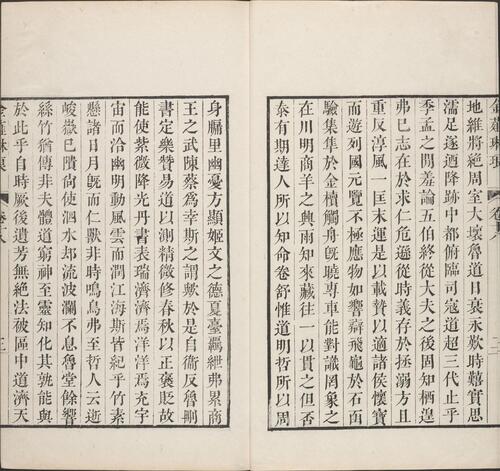 金薤琳琅
卷八
二
地維將絕周室大壞魯道日衰永歎時艱實思
濡足遂迺降跡中都俯臨司寇道超三代止乎
季孟之閒羞論五伯終從大夫之後固知栖遑
弗已志在於求仁危遜從時義存於拯溺方且
重反淳風一匡末運是以載贄以適諸侯懷寶
而遊列國元覽不極應物如響辯飛龜於石函
驗集隼於金櫝觸舟旣曉專車能對識罔象之
在川明商羊之興雨知來藏往一以貫之但否
泰有期達人所以知命卷舒惟道明哲所以周
身牖里幽憂方顯姬文之德夏臺羈紲弗累商
王之武陳蔡爲幸斯之謂歟於是自衛反魯刪
書定樂贊易道以測精微修春秋以正褒貶故
能使紫微降光丹書表瑞濟濟焉洋洋焉充宇
宙而洽幽明動風雲而潤江海斯皆紀乎竹素
懸諸日月旣而仁獸非時鳴鳥弗至哲人云逝
峻嶽已隤尙使泗水却流波瀾不息魯堂餘響
絲竹猶傳非夫體道窮神至靈知化其孰能與
於此乎自時厥後遺芳無絕法被區中道濟天
金薤琳琅
卷八
三